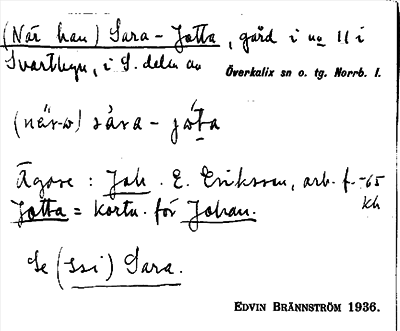 (När han) Sara - Jotta, gård i nr 11 i
Svartbyn, i S. delen av
Överkalix sn o. tg. Norrb. l.
(när-w) såra - jóta
Ägare : Joh. E. Eriksson, arb. f. -65
Jotta = kortn. för Johan. kh
Se (ssi) Sara.
EDVIN BRÄNNSTRÖM 1936.